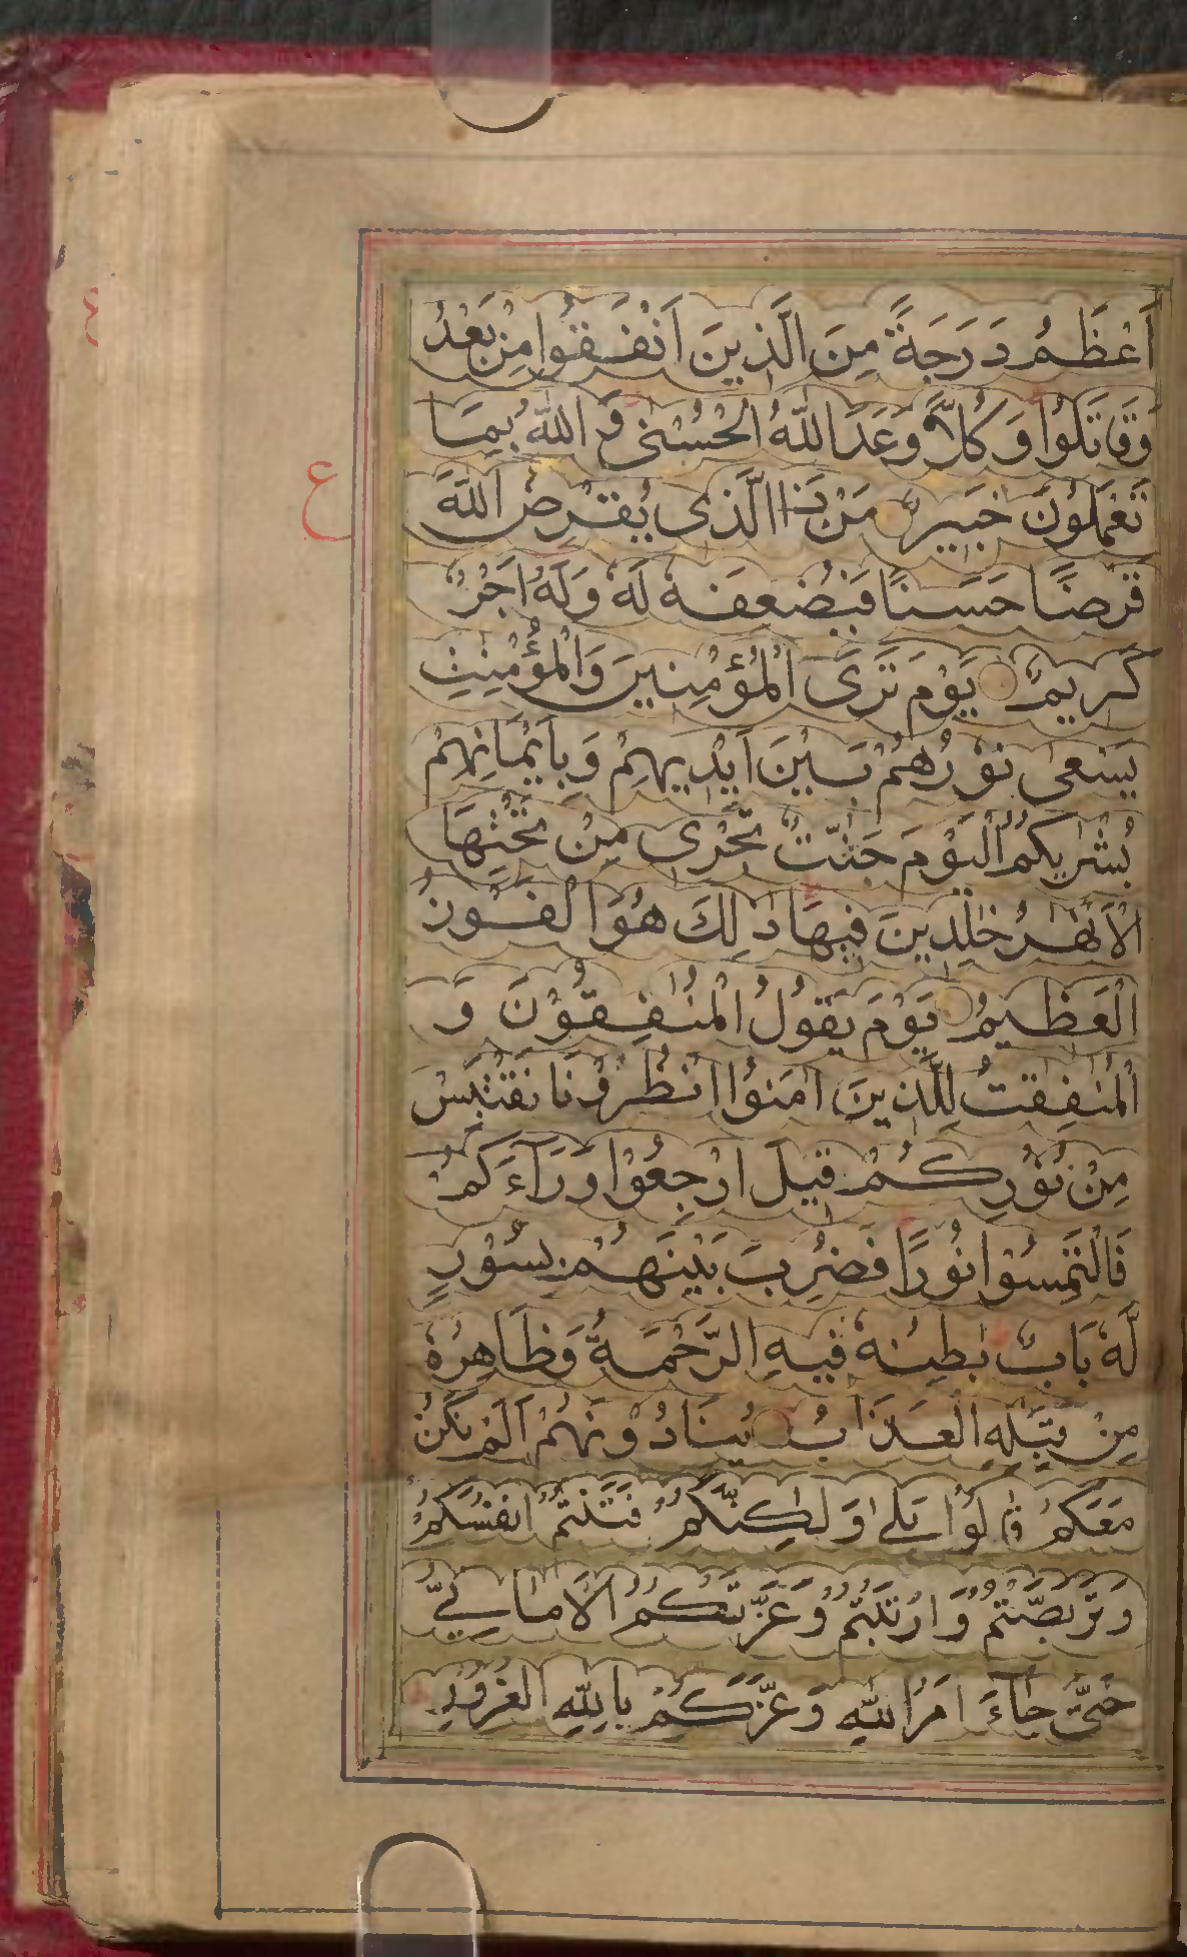 اَعْظَمُ دَرَجَةً مِنَ الَّذِينَ اَنْفَقُوا مِنْ بَعْدُ
وَقَاتَلُوْا وَكُلًّا وَعَدَ اللّٰهُ الْحُسْنٰى وَ اللّٰهُ بِمَا
تَعْمَلُوْنَ خَبِيرٌ مَنْ ذَا الَّذِى يُقْرِضُ اللّٰهَ
قَرْضًا حَسَنًا فَيُضٰعِفَهٗ لَهٗ وَلَهٗ اَجْرٌ
كَرِيمٌ يَوْمَ تَرَى الْمُؤْمِنِينَ وَالْمُؤْمِنٰتِ
يَسْعٰى نُوْرُهُمْ بَيْنَ اَيْدِيهِمْ وَبِاَيْمَانِهِمْ
بُشْرٰيكُمُ الْيَوْمَ جَنّٰتٌ تَجْرِى مِنْ تَحْتِهَا
الْاَنْهٰرُ خٰلِدِينَ فِيهَا ذٰلِكَ هُوَ الْفَوْزُ
الْعَظِيمُ يَوْمَ يَقُولُ الْمُنٰفِقُوْنَ وَ
الْمُنٰفِقٰتُ لِلَّذِينَ اٰمَنُوْا انْظُرُوْنَا نَقْتَبِسْ
مِنْ نُوْرِكُمْ قِيلَ ارْجِعُوْا وَرَآءَكُمْ
فَالْتَمِسُوْا نُوْرًا فَضُرِبَ بَيْنَهُمْ بِسُوْرٍ
لَّهٗ بَابٌ بٰطِنُهٗ فِيهِ الرَّحْمَةُ وَظَاهِرُهٗ
مِنْ قِبَلِهِ الْعَذَابُ يُنَادُوْنَهُمْ اَلَمْ نَكُنْ
مَعَكُمْ قَالُوْا بَلٰى وَلٰكِنَّكُمْ فَتَنْتُمْ اَنْفُسَكُمْ
وَتَرَبَّصْتُمْ وَارْتَبْتُمْ وَغَرَّتْكُمُ الْاَمَانِيُّ
حَتّٰى جَآءَ اَمْرُ اللّٰهِ وَغَرَّكُمْ بِاللّٰهِ الْغَرُوْرُ
ع